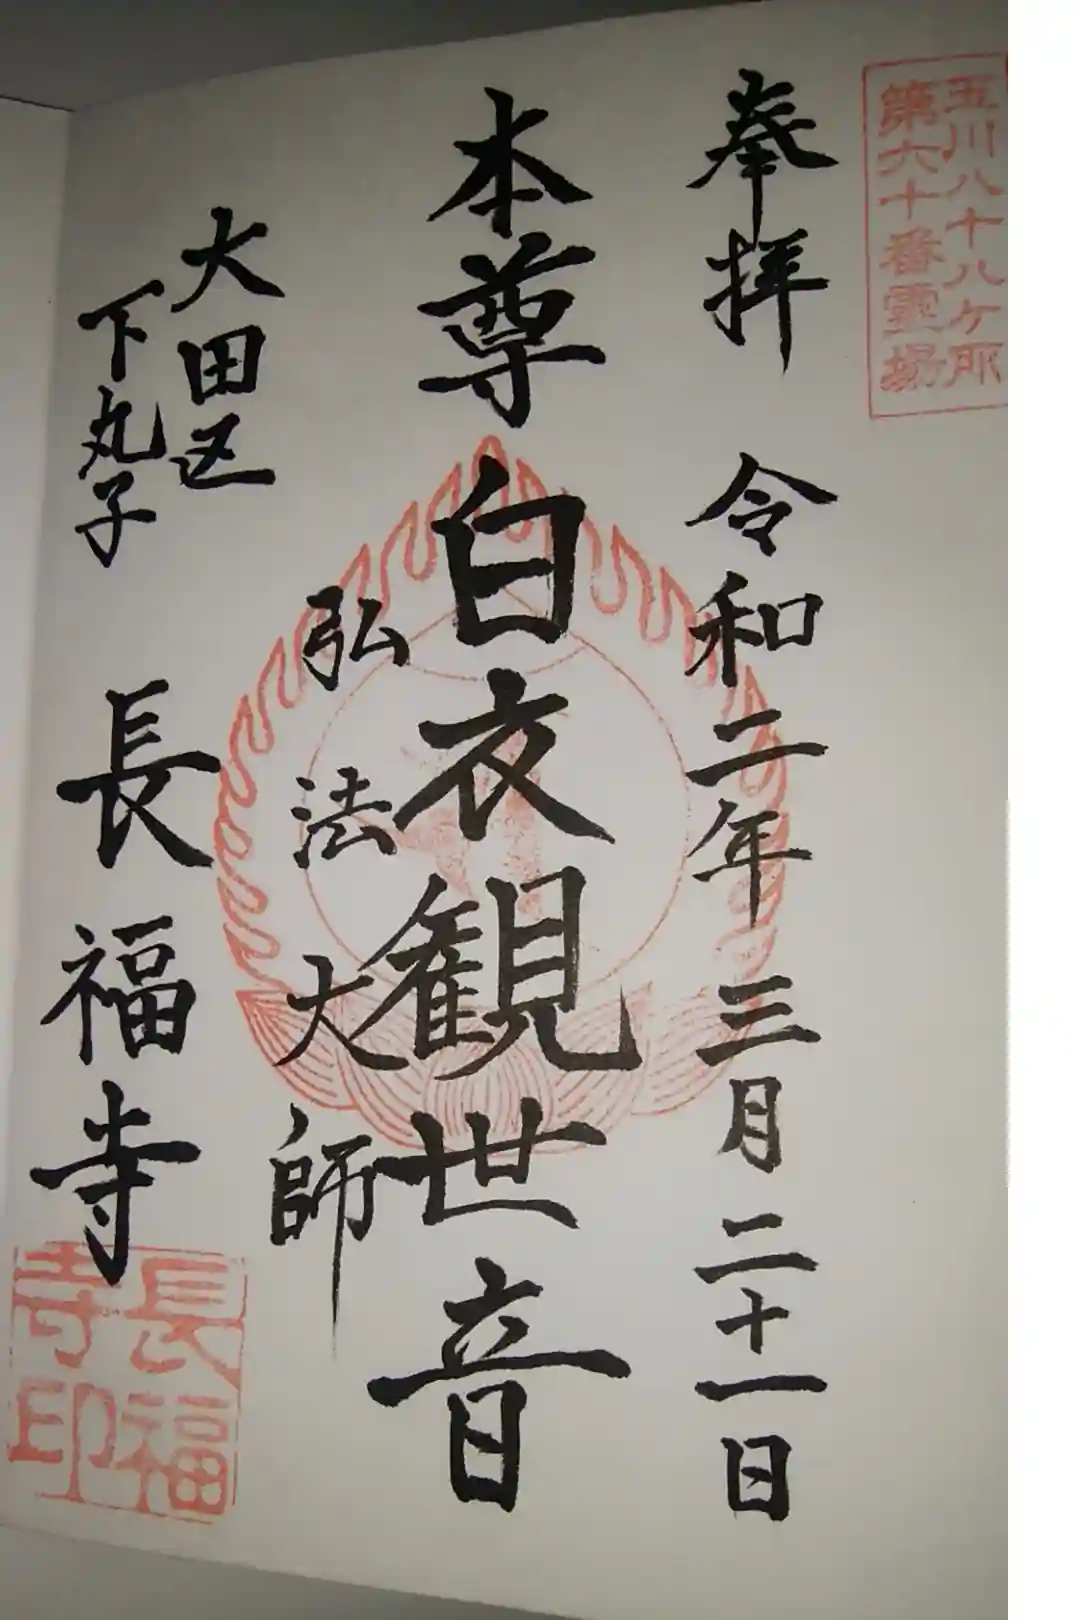 玉川八十八ケ所
第六十番霊場
奉拝 令和二年三月二十一日
本尊 白衣観世音
弘法大師
大田区
下丸子
長福寺
長福
寺印